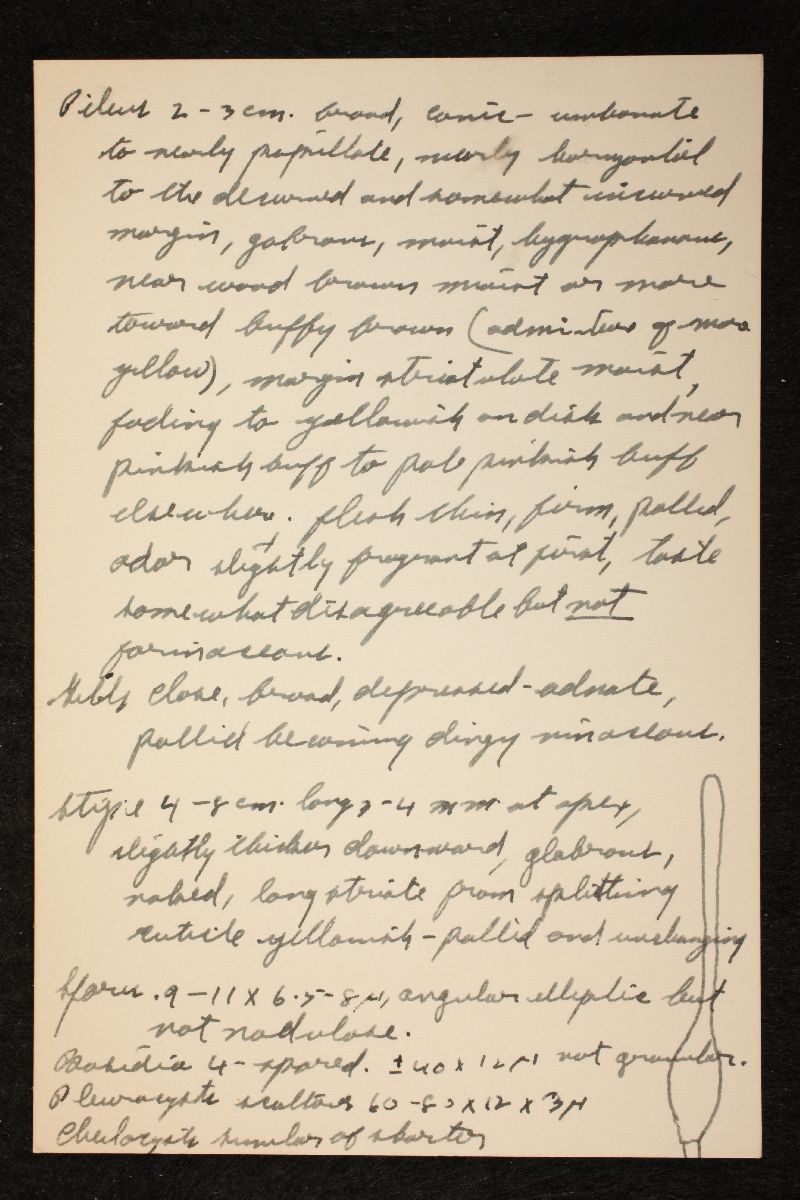 Pileus 2-3 cm. broad, conic-umbonate
to nearly papillate, nearly horizontal
to the decurved and somewhat incurved
margin, gabrous, moist, hygrophanous,
near wood brown moist or more
toward buffy brown (admixture of more
yellow), margin striatulate moist,
fading to yellowish on disk and near
pinkish buff to pale pinkish buff
elsewhere. flesh thin, firm, pallid,
odor slightly fragrant at first, taste
somewhat disagreeable but not
farinaceous.
Gills close, broad, depressed-adnate,
pallid becoming dingy vinaceous.
Stipe 4-8 cm. long 2-4 mm at apex,
slightly thicker downward, glabrous,
naked, long striate from splitting
cuticle yellowish-pallid and unchanging
Spores. 9-11 X 6.5-8 µ, angular elliptic but
not nodulose.
Basidia 4-spored. ± 40 x 12 µ not granular.
Pleurocysts scattered 60-80 x 12 x 3 µ
Cheilocysts similar or shorter